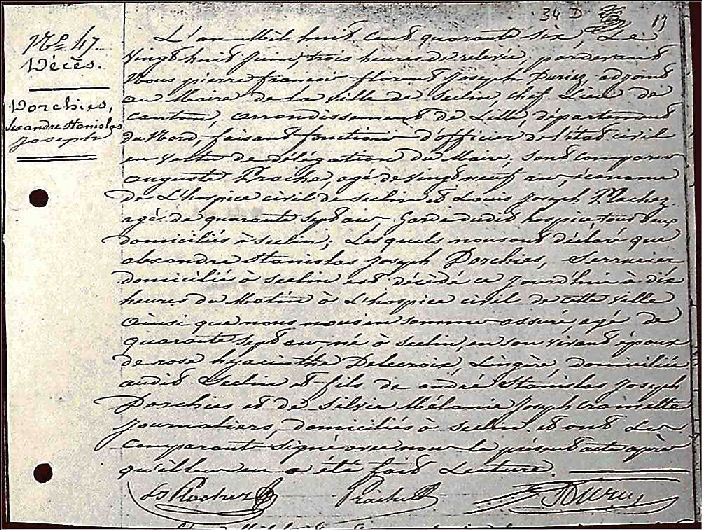 34 D 17
N° 47
Décès.
Dorchies,
Alexandre Stanislas
Joseph
L'an Mil huit cent quarante six, Le
Vingt huit juin, trois heures de relevée, pardevant
Nous pierre francois florent Joseph Duriez, adjoint
au Maire de la ville de Seclin, chef Lieu de
canton, arrondissement de Lille, département
du Nord, faisant fonctions d'officier de l'état civil
en vertu de délégation du Maire, sont comparus
auguste agé de vingt neuf ans,
de L'hospice civil de seclin et Louis Joseph
agé de quarante sept ans Garde dudit hospice tous deux
domiciliés à seclin; Lesquels nous ont déclaré que
alexandre Stanislas joseph Dorchies, Serrurier
domicilié à seclin est décédé ce jourd'hui à dix
heures du Matin à L'hospice civil de cette ville
ainsi que nous nous en sommes assuré, agé de
quarante sept ans, né à seclin, en son vivant époux
de rose hyacinthe Delecroix, Lingère, domiciliée
audit Seclin et fils de andré Stanislas Joseph
Dorchies et de Silvie Mélanie Joseph
journaliers, domiciliés à seclin et ont Les
comparants signé avec nous le présent acte après
qu'il leur en a été fait Lecture.
Duriez